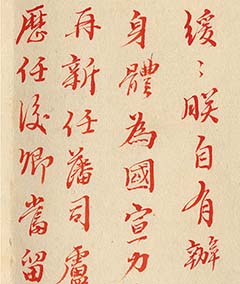 緩〻朕自有辦
身體為國宣力
再新任藩司盧
歷任後卿當留